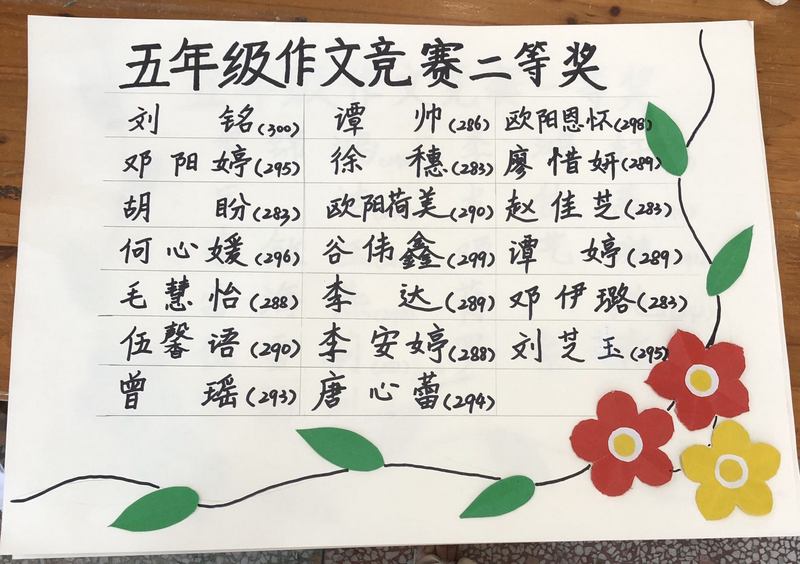 五年级作文竞赛二等奖
刘铭(300) 谭帅(286) 欧阳恩怀(298)
邓阳婷(295) 徐穗(283) 廖惜妍(289)
胡盼(283) 欧阳荷美(290) 赵佳芝(283)
何心媛(296) 谷伟鑫(299) 谭婷(289)
毛慧怡(288) 李达(289) 邓伊璐(283)
伍馨语(290) 李安婷(288) 刘芝玉(295)
曾瑶(293) 唐心蕾(294)